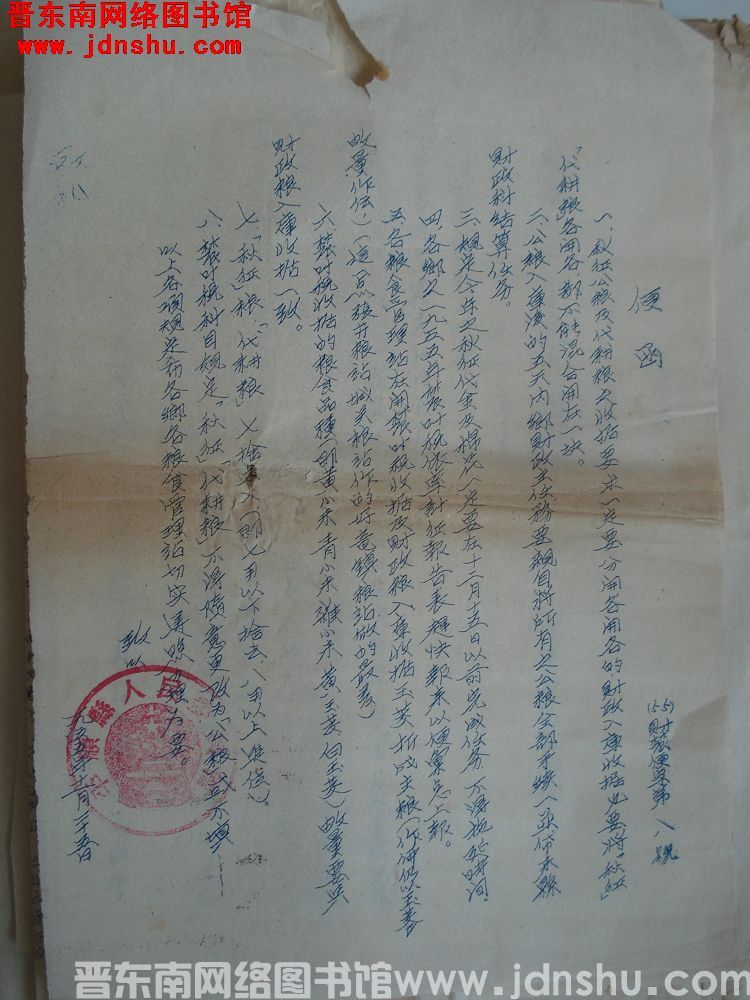 晋东南网络图书馆
www.jdnshu.com
便函
(55)财农便字第八号
一、秋征公粮及代耕粮之收据要求一定要分开各用各的财政入库收据也要将「秋征」
「代耕粮」各用各部不能混合用在一块。
二、公粮入库后的五天内鄉财政主任務要親自将所有之公粮全部手续一並带来縣
财政科结算任务。
三、规定今年之秋征代金及棉花一定要在十二月十五日以前完成任务不得拖延時间
四、各鄉之一九五五年農叶税依率計征報告表趕快報来以便彙总上報。
五、各粮食管理站在用農叶税收据及财政粮入库收据玉茭折成主粮(作価仍以玉茭
数量作价)(这一点張井粮站城关粮站作的好竜镇粮站做的最差)
六、農叶税收据的粮食品種(即黄小米青小米雜小米黄玉茭白玉茭)数量要与
财政粮入庫收据一致。
七、「秋征」粮「代耕粮」七捨八入(即七月以下捨去,八月以上進位)。
八、農叶税科目规定「秋征」「代耕粮」不得随意更改为「公粮」或不填
以上各項規定希各鄉各粮食管理站切实遵照办理为要。
致以
一九五五年十一月二十五日
縣人民
晋东南网络图书馆www.jdnshu.com